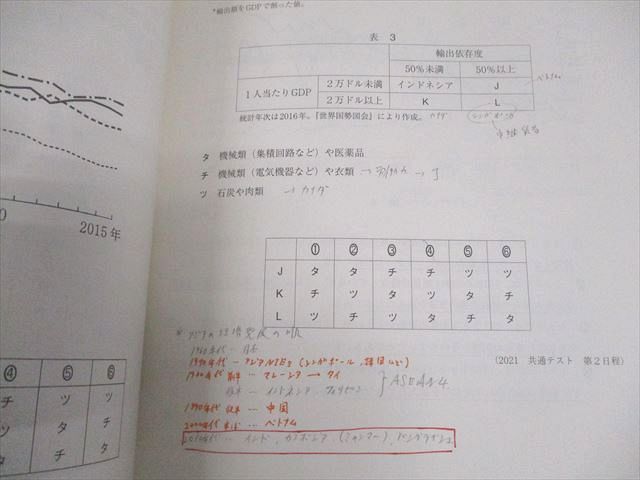 *輸出額をGDPで割った値。
表 3
輸出依存度
50%未満 50%以上
1人当たりGDP 2万ドル未満 インドネシア J
2万ドル以上 K L
統計年次は2016年。『世界国勢図会』により作成。
ベトナム
カナダ
シンガポール
タ 機械類（集積回路など）や医薬品
チ 機械類（電気機器など）や衣類 → → J
ツ 石炭や肉類 → カナダ
0
2015年
① ② ③ ④ ⑤ ⑥
J タ タ チ チ ツ ツ
K チ ツ タ ツ タ チ
L ツ チ ツ タ チ タ
(2021 共通テスト 第2日程)
④ ⑤ ⑥
チ ツ ツ
ツ タ チ
タ チ タ
※ アジアの経済発展の順
1960年代 - 日本
アジアNIEs (シンガポール, 韓国など)
前半 … マレーシア → タイ
後半 … インドネシア, フィリピン
ASEAN4
1990年代 後半 … 中国
2000年代 … ベトナム
2010年代 … インド, カンボジア, (ミャンマー), バングラデシュ